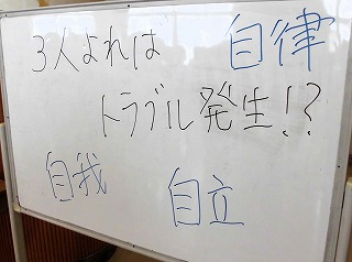 3人よれは
自律
トラブル発生!?
自我
自立